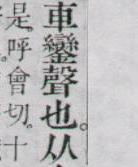 車鑾聲也。从
是。呼會切。十